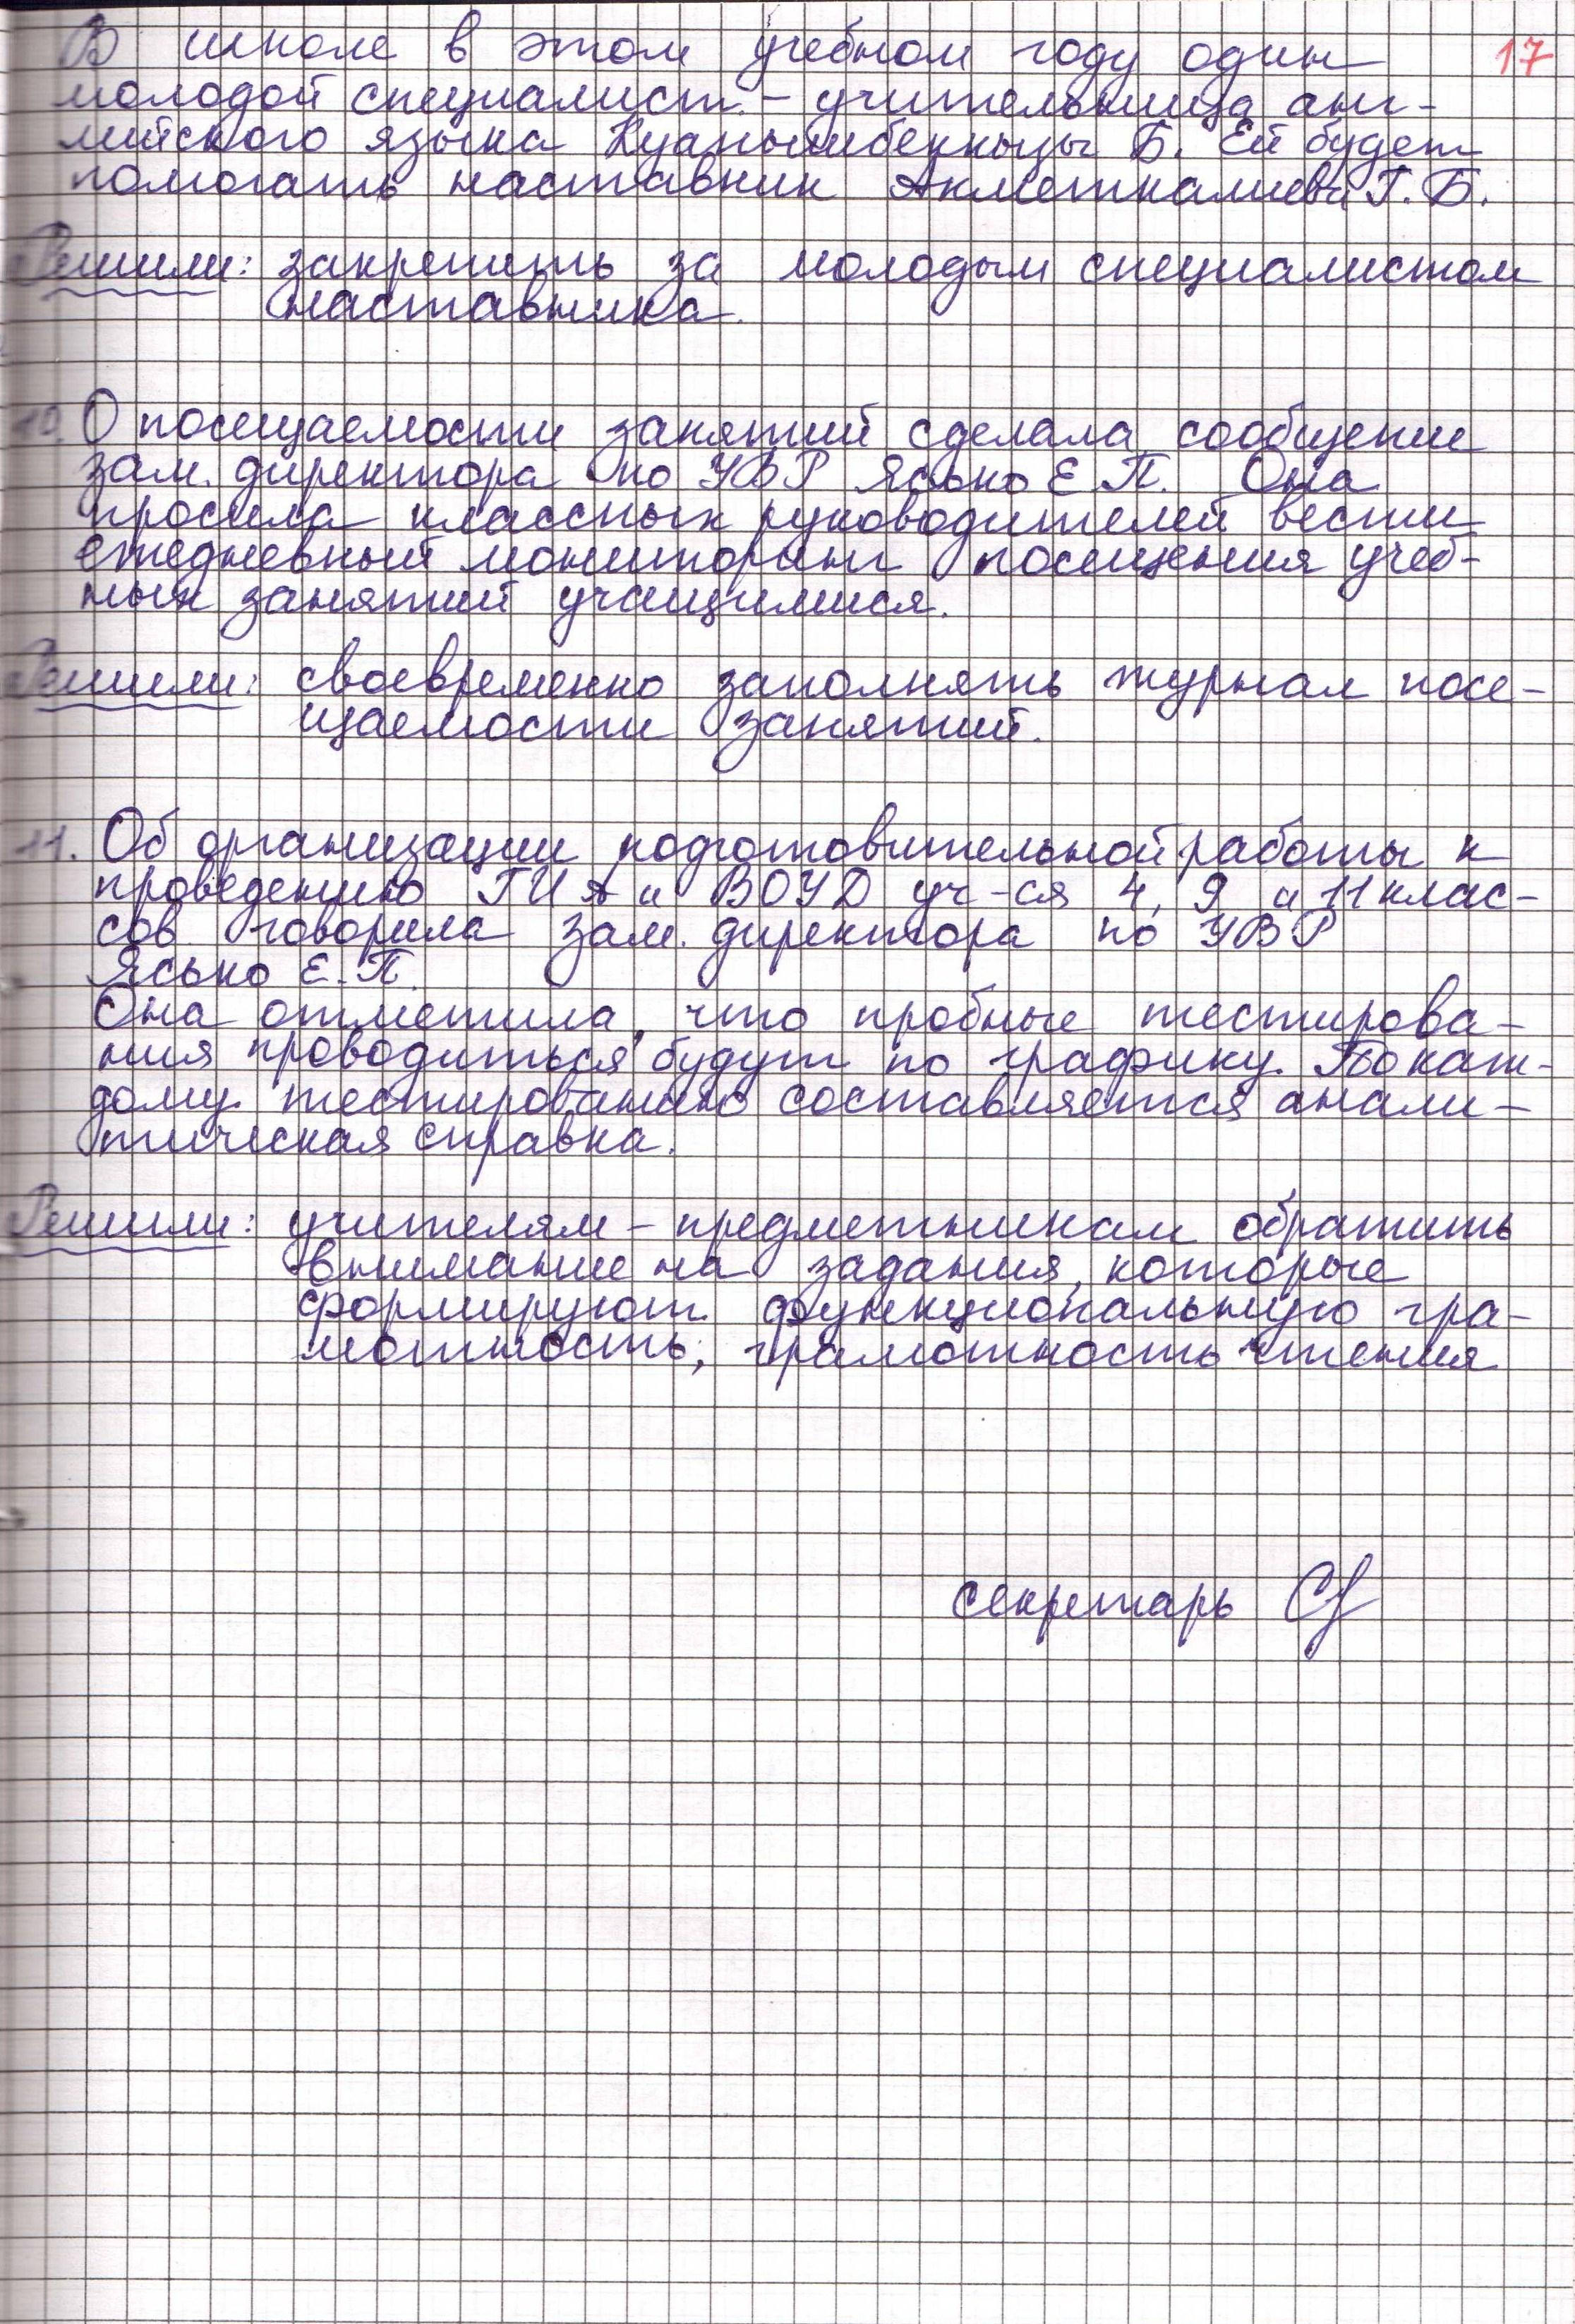 17
В школе в этом учебном году один
молодой специалист – учительница анг-
лийского языка Куанышбеккызы Б. Ей будет
помогать наставник Ахметкалиева Г.Б.
Решили: закрепить за молодым специалистом
наставника.
10. О посещаемости занятий сделала сообщение
зам. директора по УВР Ясько Е.П. Она
просила классных руководителей вести
ежедневный мониторинг посещения учеб-
ных занятий учащимися.
Решили: своевременно заполнять журнал посе-
щаемости занятий.
11. Об организации подготовительной работы к
проведению ГИА и ВОУД уч-ся 4, 9 и 11 клас-
сов говорила зам. директора по УВР
Ясько Е.П.
Она отметила, что пробные тестирова-
ния проводиться будут по графику. По каж-
дому тестированию составляется анали-
тическая справка.
Решили: учителям – предметникам обратить
внимание на задания, которые
формируют функциональную гра-
мотность, грамотность чтения
секретарь